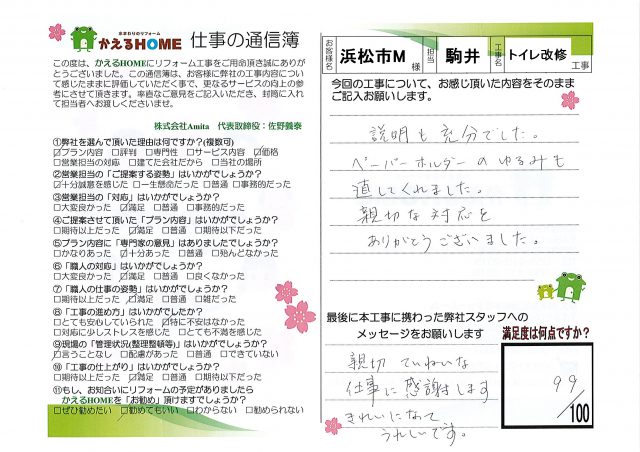 水まわりのリフォーム
かえるHOME 仕事の通信簿
この度は、かえるHOMEにリフォーム工事をご用命頂き誠にありが
とうございました。この通信簿は、お客様に弊社の工事内容について
感じたままに評価していただく事で、更なるサービスの向上の参
考にさせて頂きます。率直なご意見をご記入いただき、封筒に入れ
て担当者へお渡しくださいませ。
株式会社Amita 代表取締役：佐野義泰
①弊社を選んで頂いた理由は何ですか?(複数可)
☑プラン内容 □評判 □専門性 □サービス内容 ☑価格
□営業担当の対応 □建てた会社だから □当社の場所
②営業担当の「ご提案する姿勢」はいかがでしょうか?
☑十分誠意を感じた □一生懸命だった □普通 □事務的だった
③営業担当の「対応」はいかがでしょうか?
□大変良かった ☑満足 □普通 □事務的だった
④ご提案させて頂いた「プラン内容」はいかがでしょうか?
□期待以上だった ☑満足 □普通 □期待以下だった
⑤プラン内容に「専門家の意見」はありましたでしょうか?
□かなりあった ☑十分あった □普通 □殆んどなかった
⑥「職人の対応」はいかがでしょうか?
□大変良かった ☑満足 □普通 □良くなかった
⑦「職人の仕事の姿勢」はいかがでしょうか?
□期待以上だった ☑満足 □普通 □雑だった
⑧「工事の進め方」はいかがでしたか?
□とても安心していられた ☑特に不安はなかった
□対応に少しストレスを感じた □とても不満を感じた
⑨現場の「管理状況(整理整頓等)」はいかがでしょうか?
☑言うことなし □配慮があった □普通 □できていない
⑩「工事の仕上がり」はいかがでしょうか?
□期待以上だった ☑満足 □普通 □期待以下だった
⑪もし、お知合いにリフォームの予定がありましたら
かえるHOMEを「お勧め」頂けますでしょうか?
□ぜひ勧めたい ☑勧めてもいい □わからない □勧められない
お客様名 浜松市M 様 担当 駒井 工事名 トイレ改修 工事
今回の工事について、お感じ頂いた内容をそのまま
ご記入お願いします。
説明も充分でした。
ペーパーホルダーのゆるみも
直してくれました。
親切な対応を
ありがとうございました。
最後に本工事に携わった弊社スタッフへの
メッセージをお願いします
親切 ていねいな
仕事に感謝します
きれいになって
うれしいです。
満足度は何点ですか?
99
/100